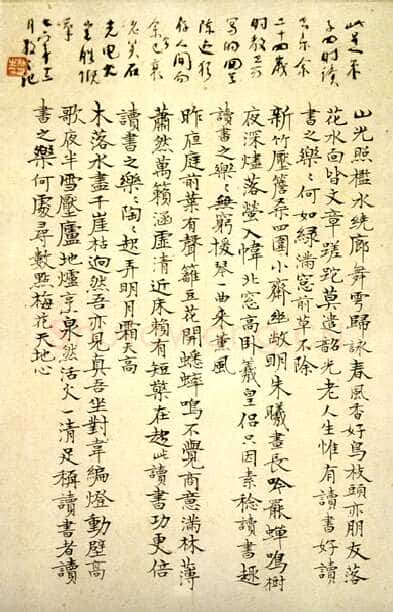 此是朱
子四時讀
書樂余
二十四歲
時教
寫的
存人間
老矣石
火電光
山光照檻水繞廊舞雩歸詠春風香好鳥枝頭亦朋友落
花水面皆文章蹉跎莫遣韶光老人生惟有讀書好讀
書之樂〻何如綠滿窓前草不除
新竹壓簷桑四圍小齋幽敞明朱曦晝長吟罷蟬鳴樹
夜深燼落螢入幃北窓高卧羲皇侶只因素稔讀書趣
讀書之樂〻無窮援琴一曲來薰風
昨夜庭前葉有聲籬豆花開蟋蟀鳴不覺商意滿林薄
蕭然萬籟涵虛清近床賴有短檠在趁此讀書功更倍
讀書之樂〻陶〻起弄明月霜天高
木落水盡千崖枯迥然吾亦見真吾坐對韋編燈動壁高
歌夜半雪壓廬地爐烹泉然活火一清足稱讀書者讀
書之樂何處尋數點梅花天地心